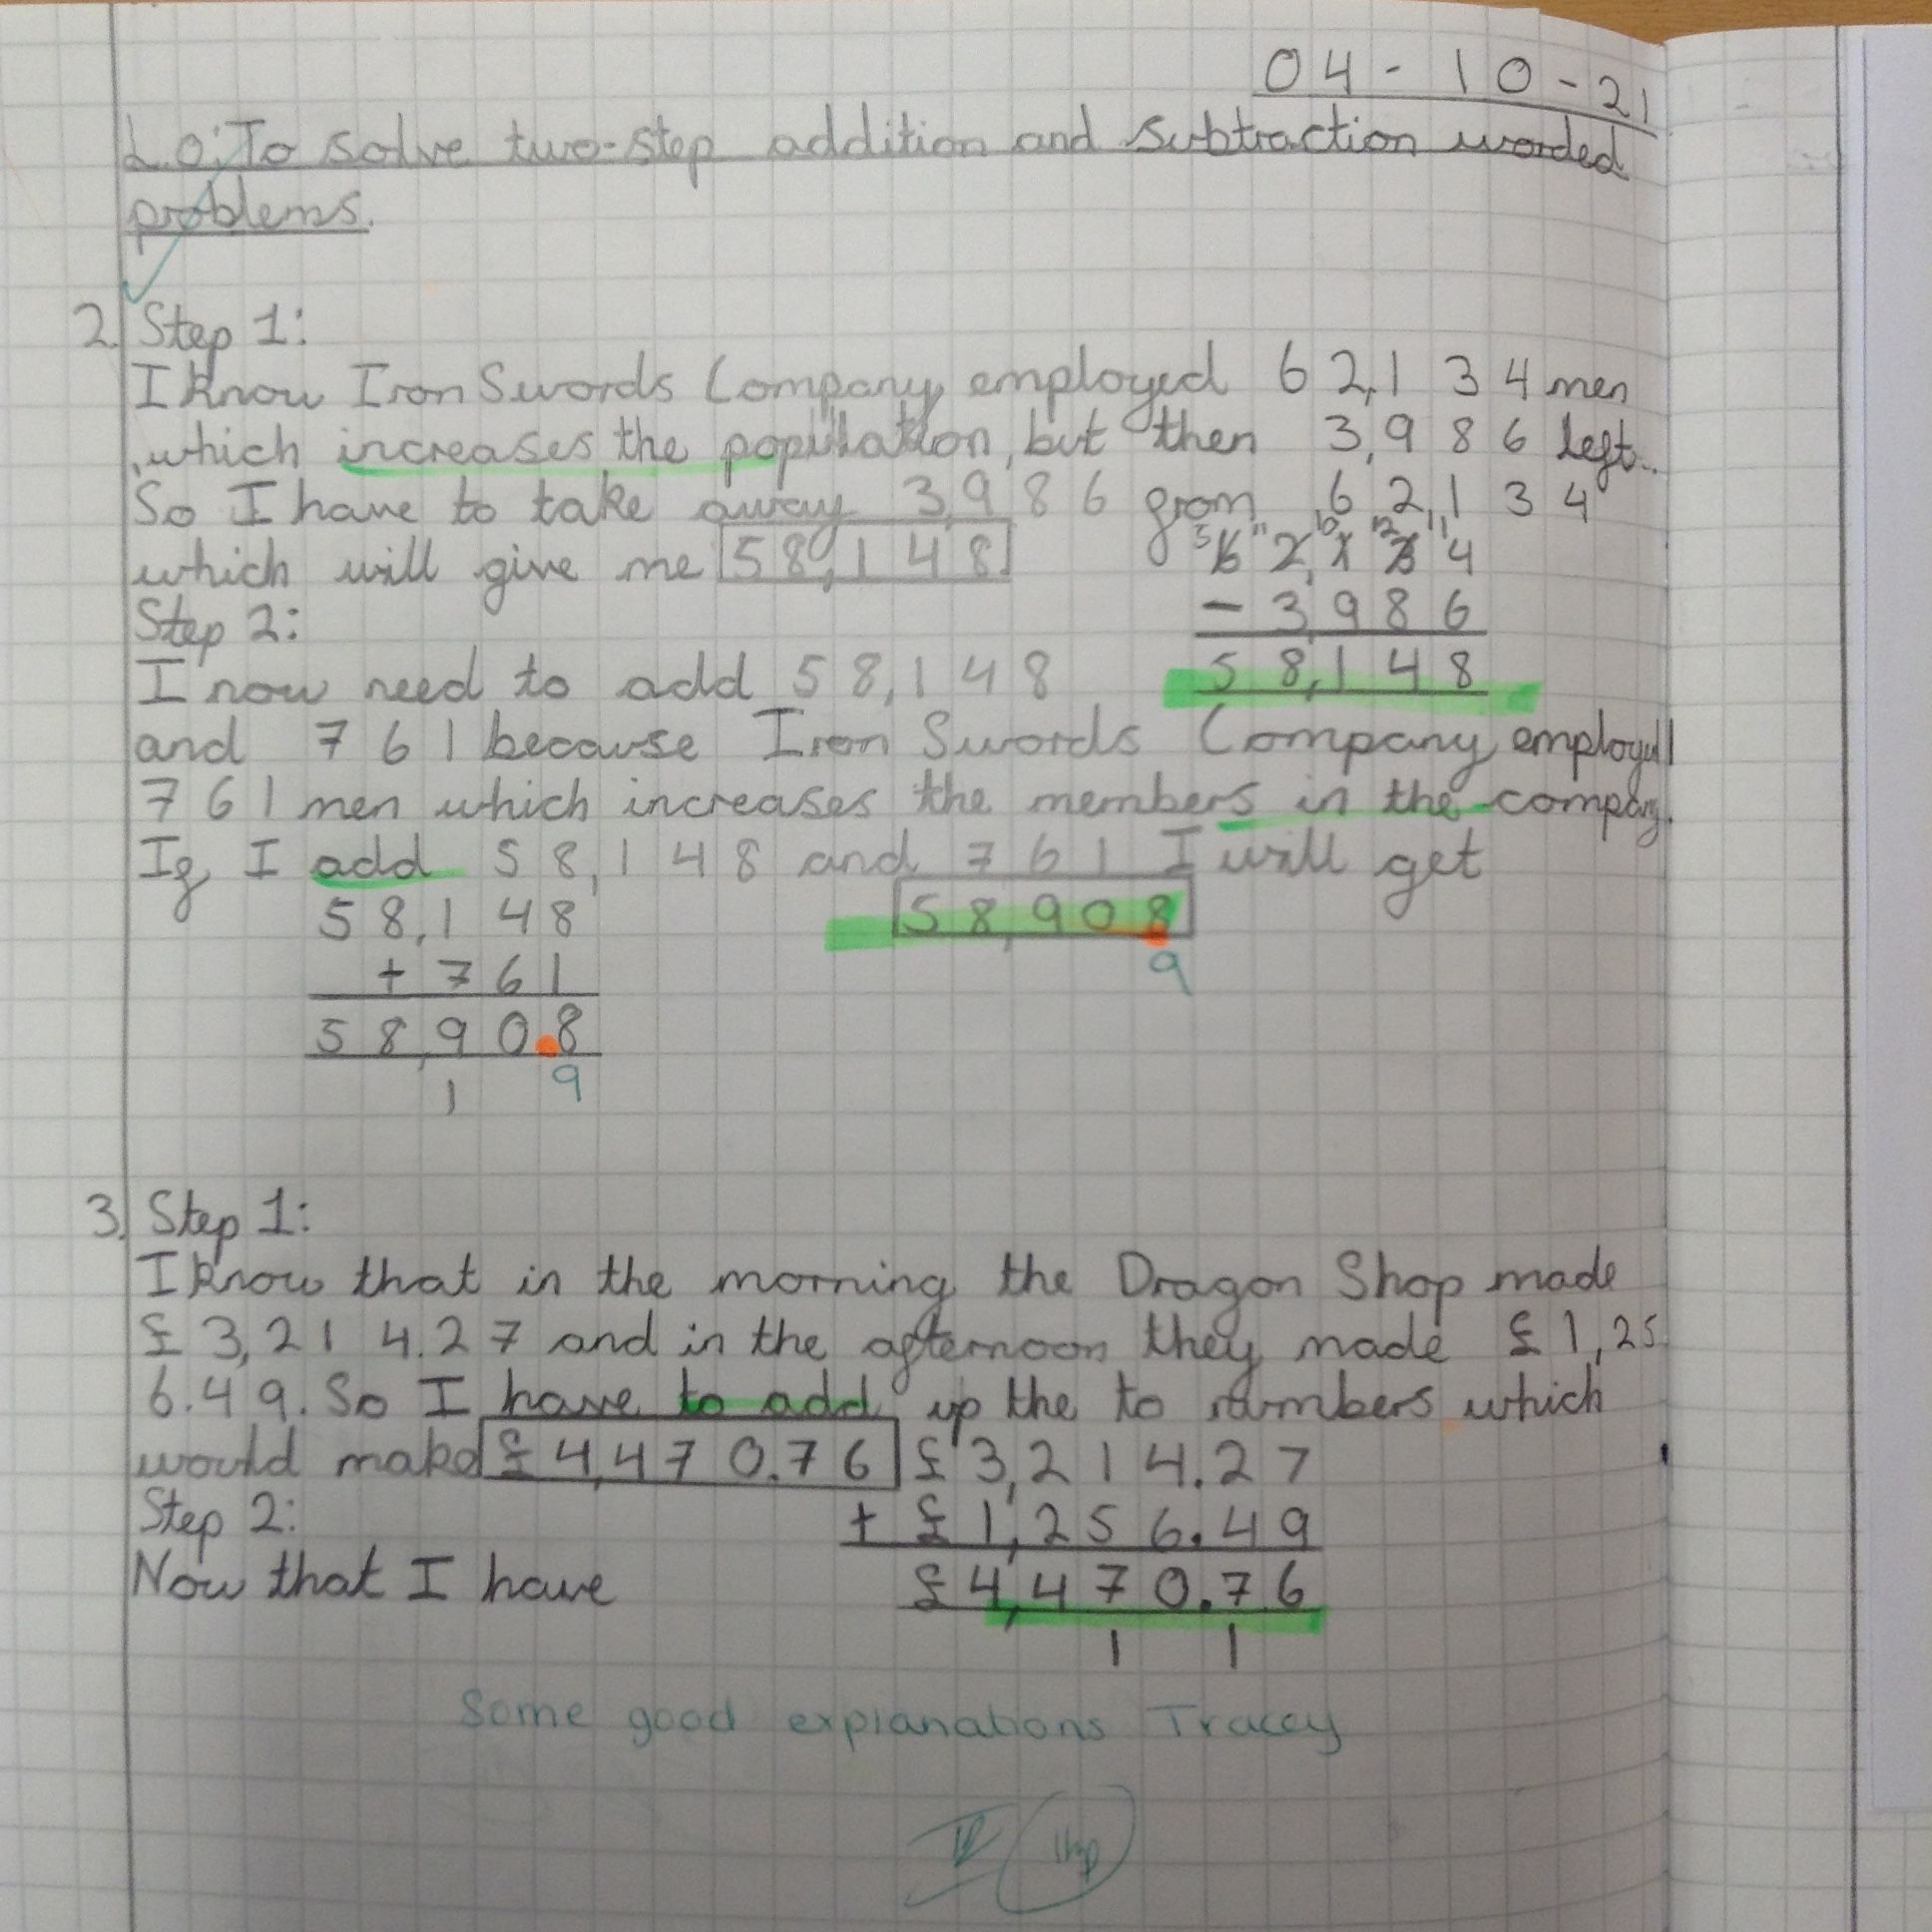 04-10-21
L.O: To solve two-step addition and subtraction worded
problems.
2. Step 1:
I know Iron Swords Company employed 62,134 men
, which increases the population, but then 3,986 left..
So I have to take away 3,986 from 62,134
which will give me 58,148
5 11 10 12 11
62,134
- 3,986
58,148
Step 2:
I now need to add 58,148
and 761 because Iron Swords Company employed
761 men which increases the members in the company.
If I add 58,148 and 761 I will get
58,908
9
58,148
+ 761
58,90.8
1 9
3. Step 1:
I know that in the morning the Dragon Shop made
£3,214.27 and in the afternoon they made £1,25
6.49. So I have to add up the to numbers which
would make £4,470.76
£3,214.27
+ £1,256.49
£4,470.76
1 1
Step 2:
Now that I have
Some good explanations Tracey